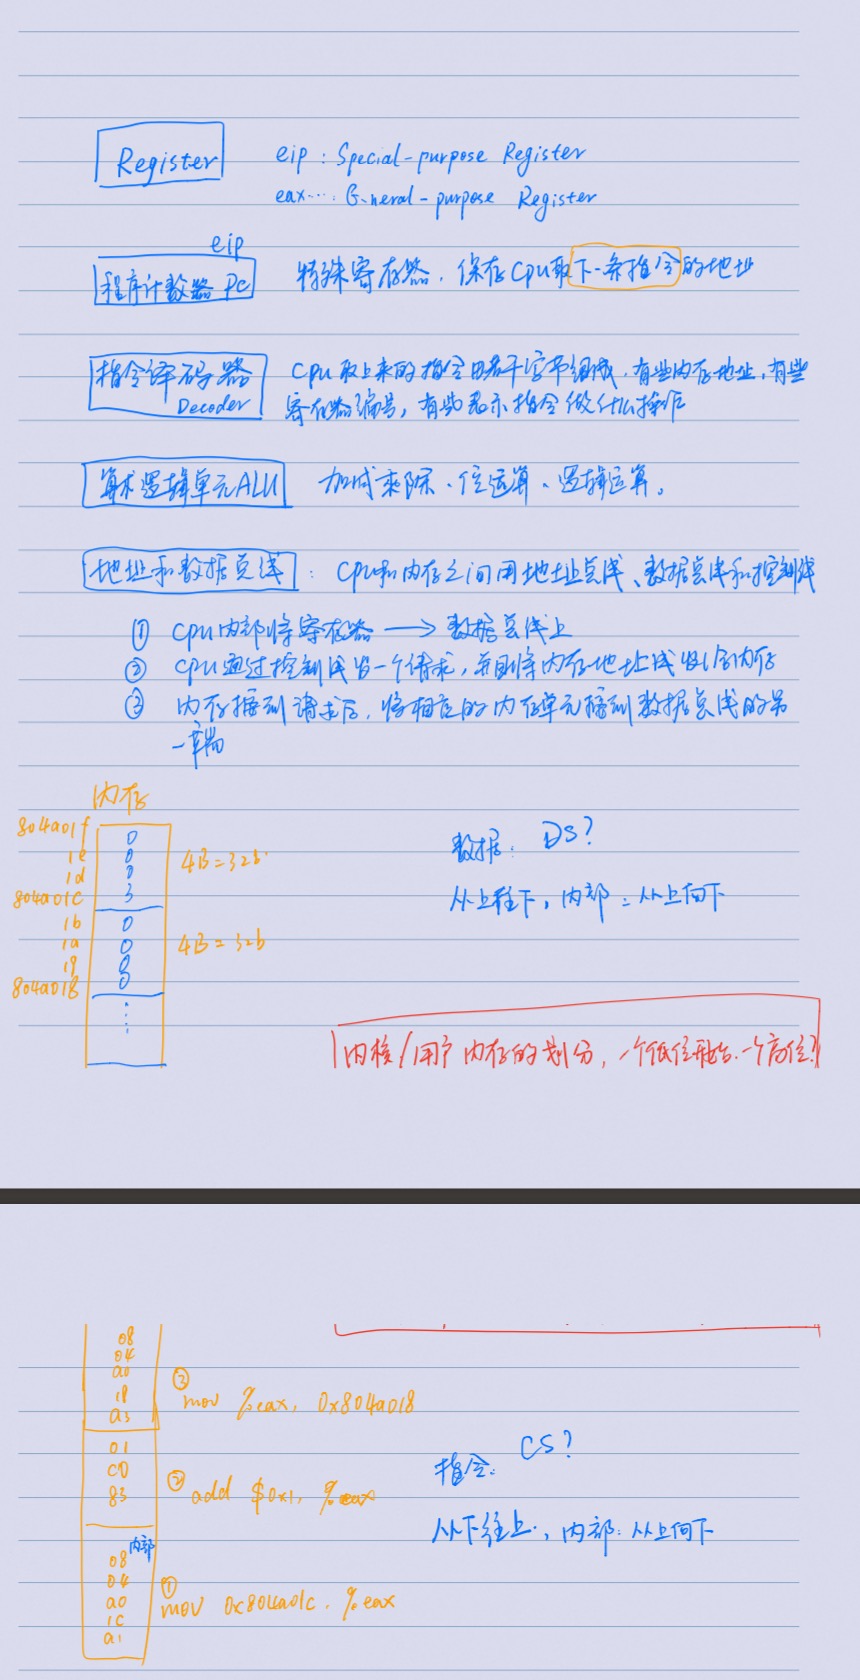 Register
eip : Special-purpose Register
eax… : General-purpose Register
eip
程序计数器 PC
特殊寄存器, 保存CPU取下一条指令的地址
指令译码器
Decoder
CPU取上来的指令由若干字节组成, 有些内存地址, 有些
寄存器编号, 有些表示指令做什么操作
算术逻辑单元ALU
加减乘除、位运算、逻辑运算。
地址和数据总线 : CPU和内存之间用地址总线、数据总线和控制线
① CPU内部将寄存器 → 数据总线上
② CPU通过控制线发一个请求, 并且将内存地址线发给内存
③ 内存接到请求后, 将相应的内存单元接到数据总线的另
一端
内存
804a01f 0
1e 0
1d 0
804a01c 3
4B=32b
1b 0
1a 0
19 0
804a018 0
4B=32b
数据: DS?
从上往下, 内部: 从上向下
内核/用户 内存的划分, 一个低位开始、一个高位?
08
04
a0
18
a3
③ mov %eax, 0x804a018
01
c0
83
② add $0x1, %eax
指令: CS?
从下往上, 内部: 从上向下
内部
08
04
a0
1c
a1
① mov 0x804a01c, %eax